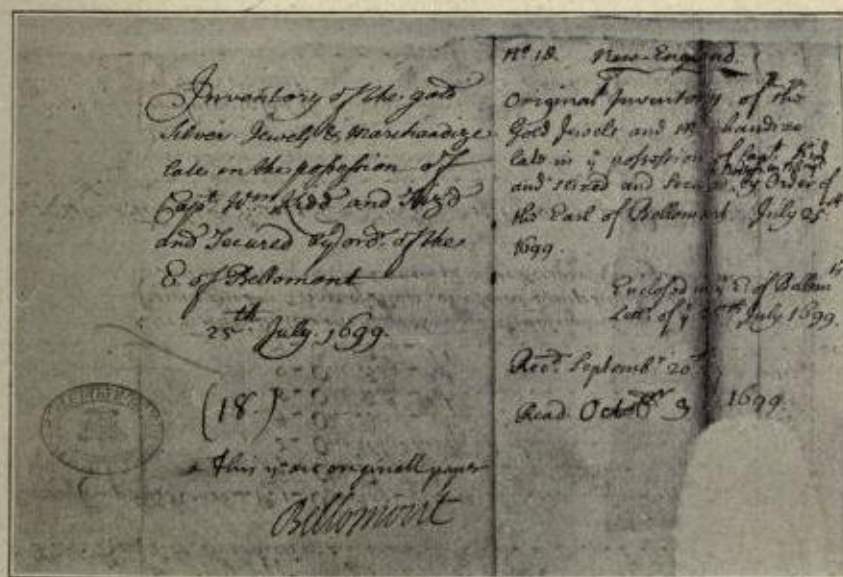 Inventory of the gold
Silver Jewels & Marchandize
late in the possession of
Capt. Wm. Kidd and Seiz'd
and Secured by ordr. of the
E of Bellomont
25th July. 1699.
(18.)
This is an originall paper
Bellomont
No 18. New-England.
Original Inventory of the
Gold Jewels and Merchandize
late in ye possession of Capt. Kid
and seized and secured by Order of
the Earl of Bellomont July 25th
1699.
Enclosed in ye E. of Bellomts
Lettr. of ye 26th July 1699.
Recd. Septembr 20th
Read Octobr 3 1699.